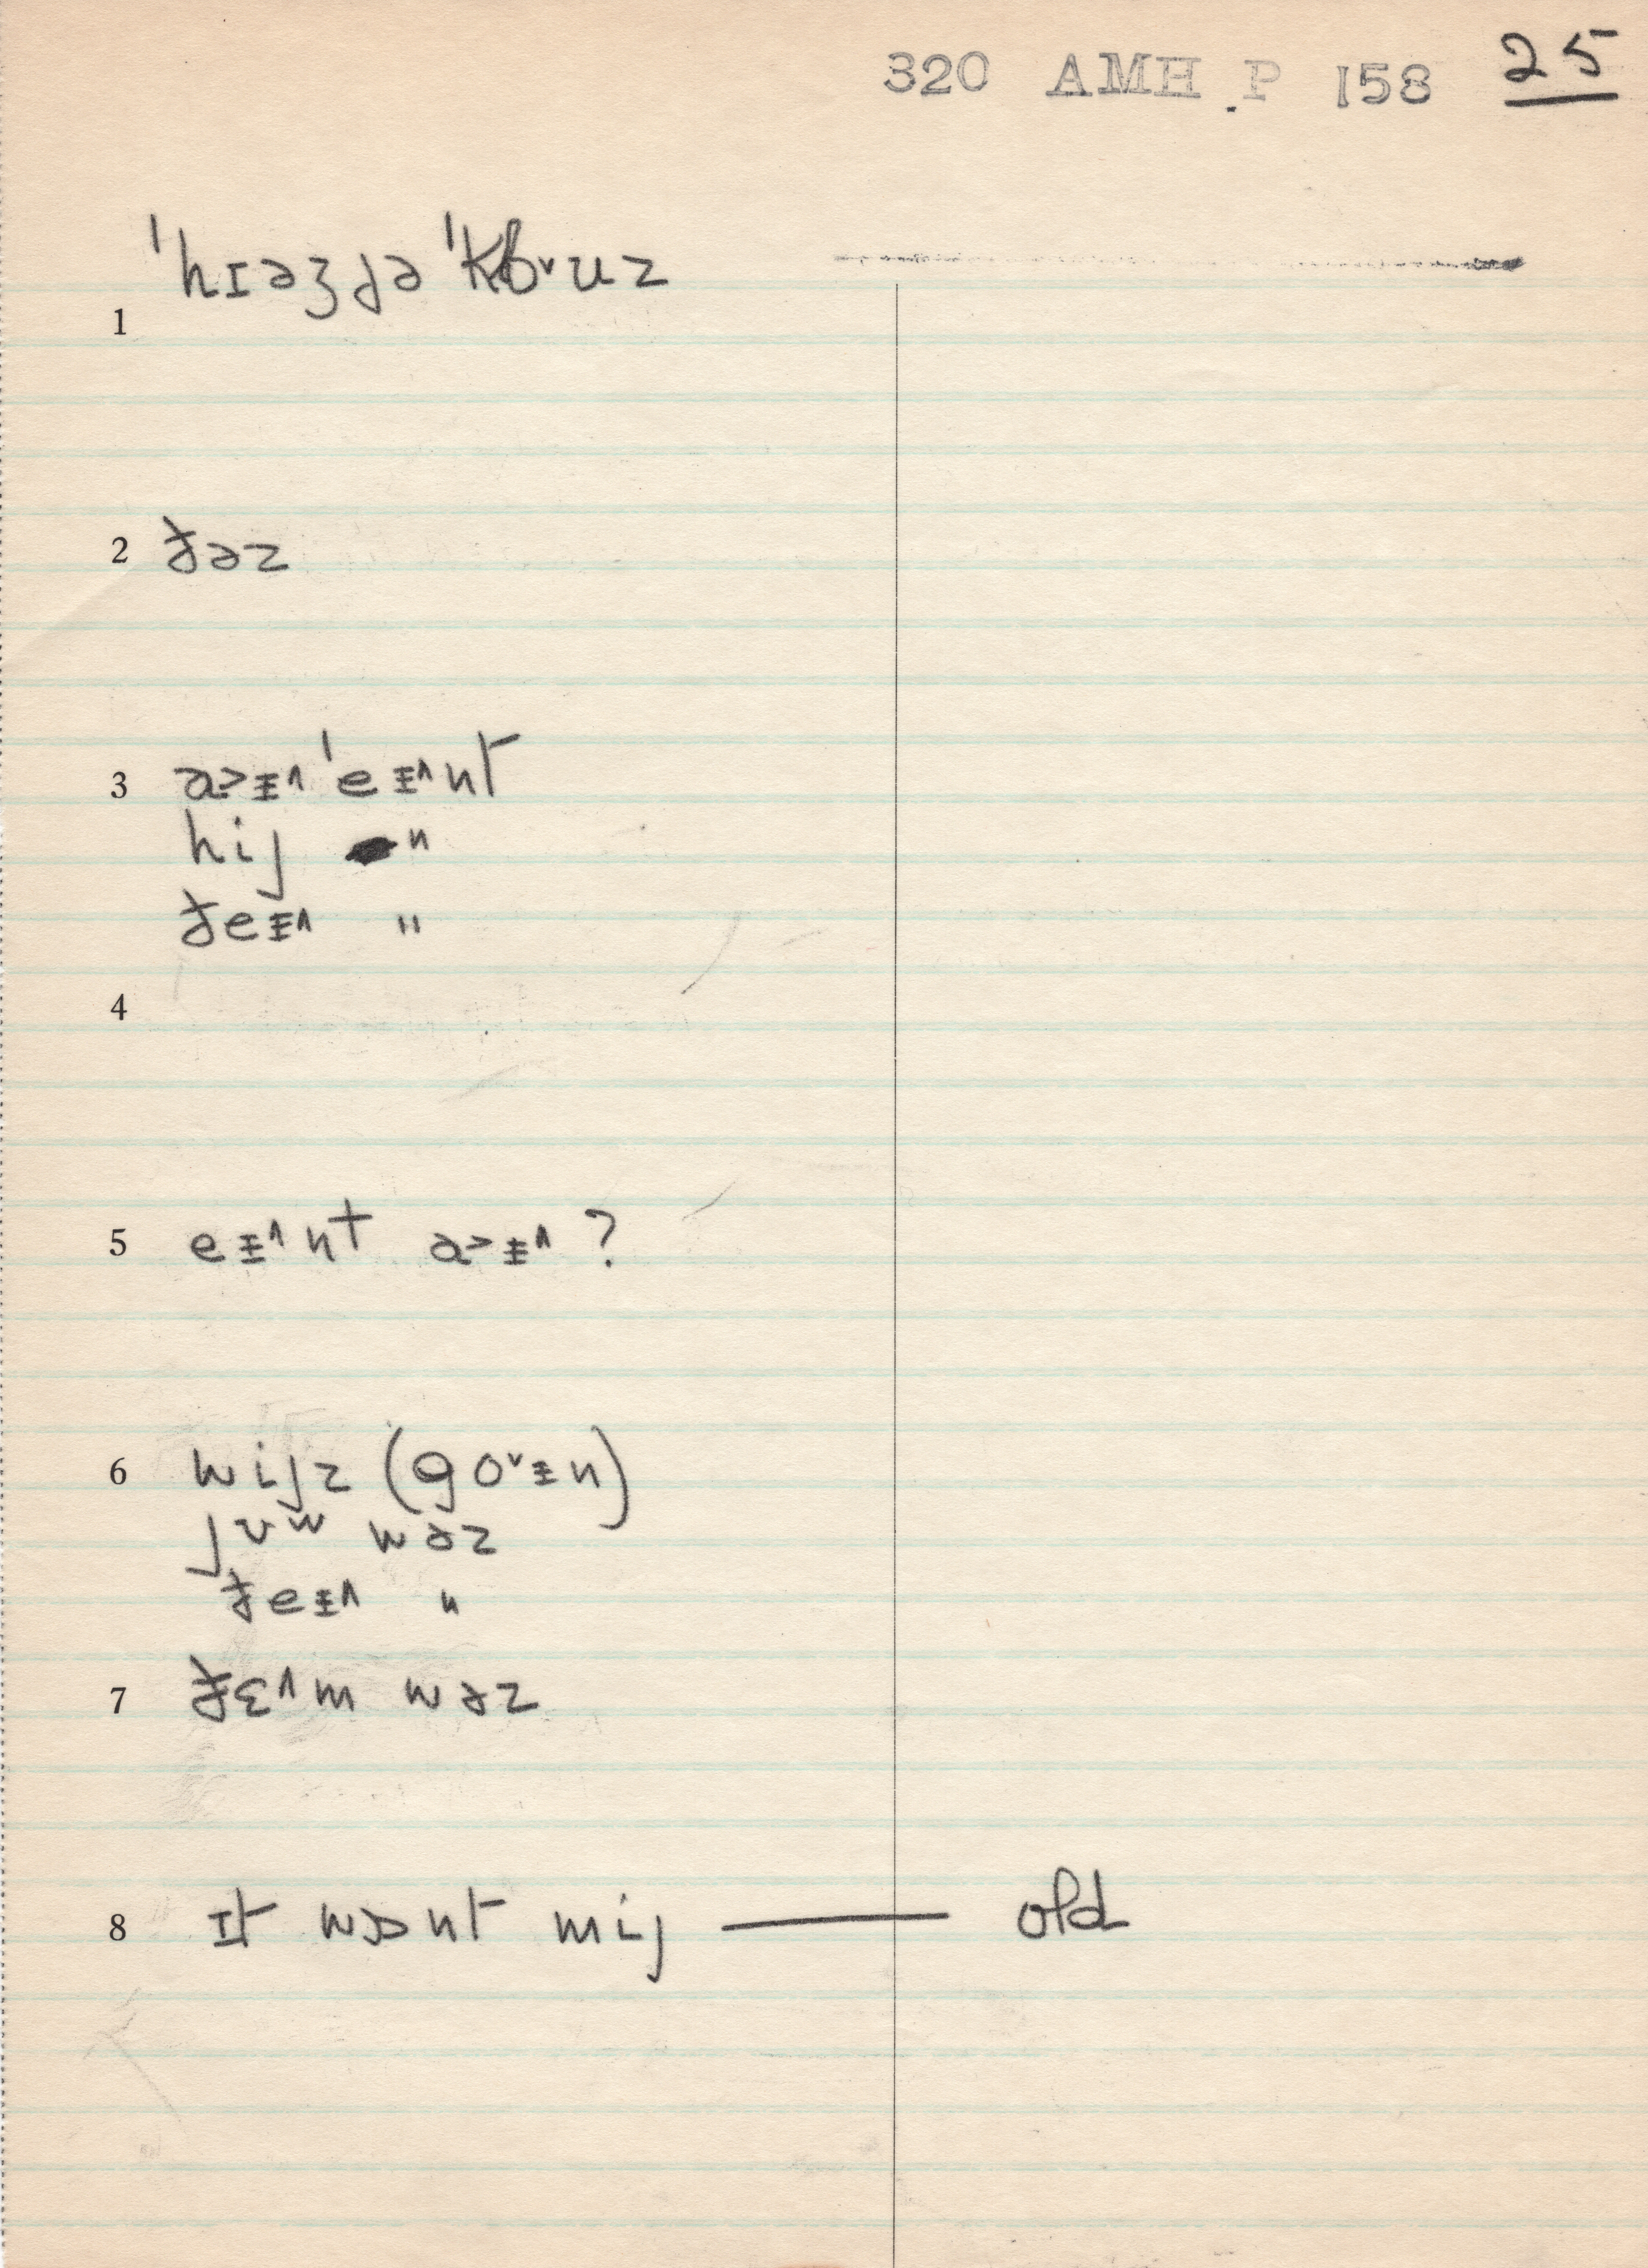 320 AMH P 158 25
1 ˈhɪəʒɟə ˈkʊ˅uz
2 ɟəz
3 a˃ᵻ˄ ˈeᵻ˄nt
hij "
ɟeᵻ˄ "
4
5 eᵻ˄nt a˃ᵻ˄ ?
6 wijz (go˅ᵻn)
jʊw wəz
ɟeᵻ˄ "
7 ɟɛ˄m wəz
8 ɪt wɔnt mij —— old